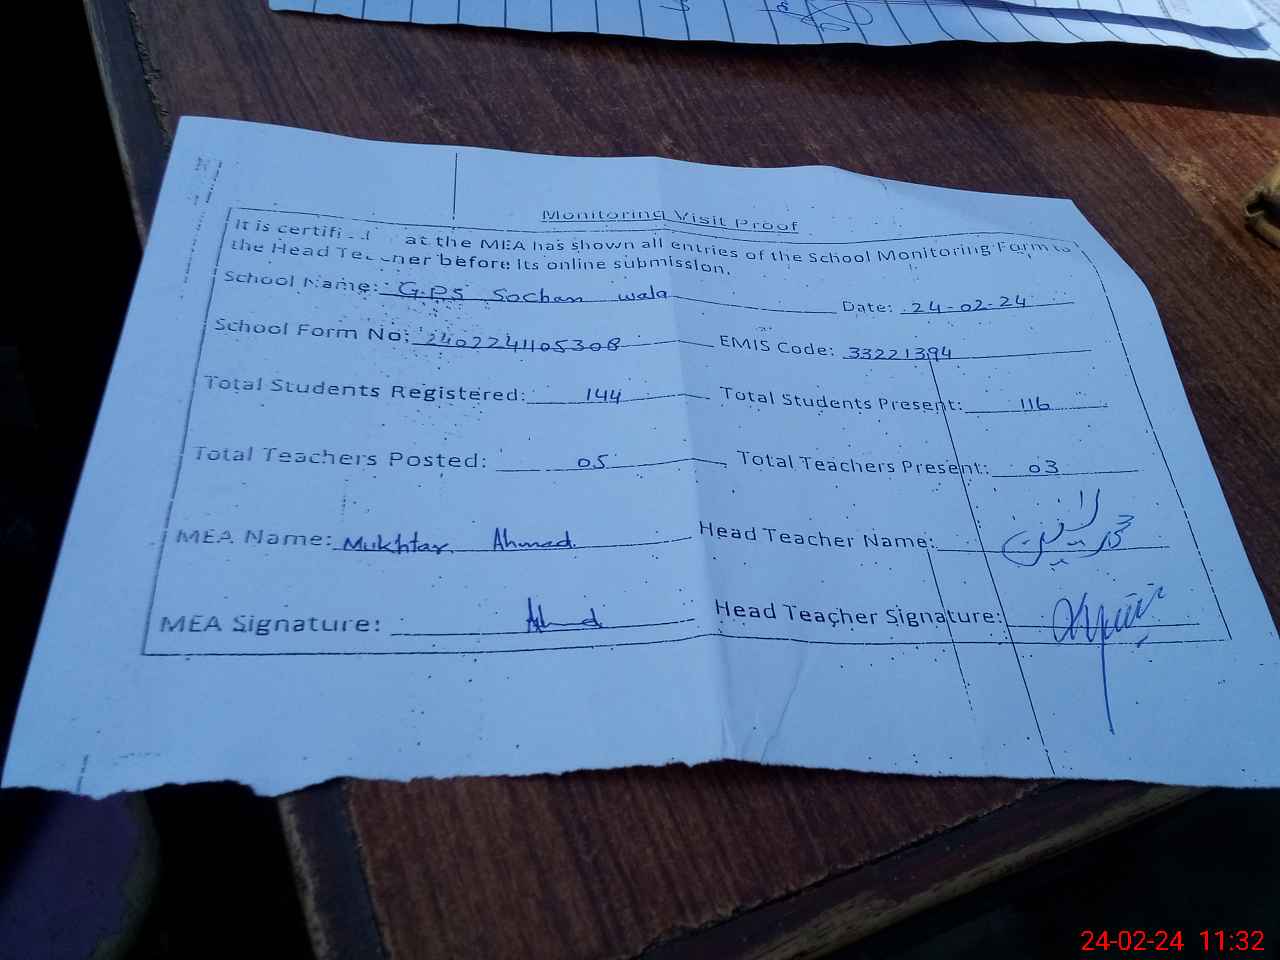 Monitoring Visit Proof
It is certifi at the MEA has shown all entries of the School Monitoring Form to
the Head Teacher before its online submission.
School Name: G.P.S Sochan wala Date: 24-02-24
School Form No: 2402241105308 EMIS Code: 33221394
Total Students Registered: 144 Total Students Present: 116
Total Teachers Posted: 05 Total Teachers Present: 03
MEA Name: Mukhtar Ahmad Head Teacher Name:
MEA Signature: Ahmd Head Teacher Signature:
24-02-24 11:32